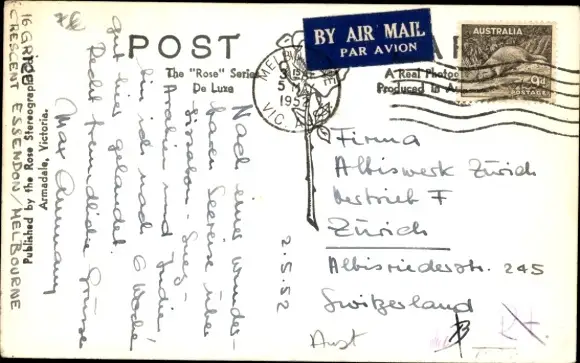 POST
BY AIR MAIL
PAR AVION
AUSTRALIA
9d
POSTAGE
The "Rose" Series
De Luxe
A Real Photo
Produced in Au
MELBOURNE
5
1952
VIC.
16 GREEN
CRESCENT ESSENDON/MELBOURNE
Published by the Rose Stereograph
Armadale, Victoria.
2.5.52
Nach einer wunder-
baren Seereise über
Lissabon - Suez -
Arabien und Indien
bin ich nach 6 Wochen
gut hier gelandet.
Recht freundliche Grüsse
Max
Firma
Albiswerk Zürich
Vertrieb F
Zürich
Albisriederstr. 245
Switzerland
Aust